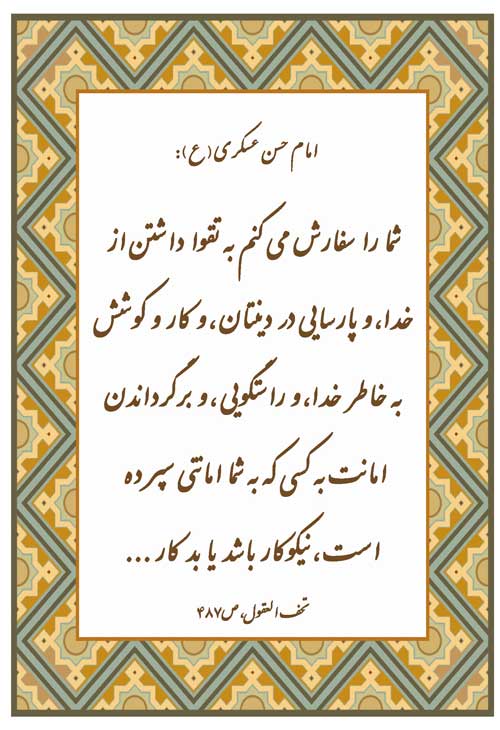 امام حسن عسکری (ع):
شما را سفارش می کنم به تقوا داشتن از
خدا، و پارسایی در دینتان، و کار و کوشش
به خاطر خدا، و راستگویی، و برگرداندن
امانت به کسی که به شما امانتی سپرده
است، نیکوکار باشد یا بد کار ...
تحف العقول، ص۴۸۷